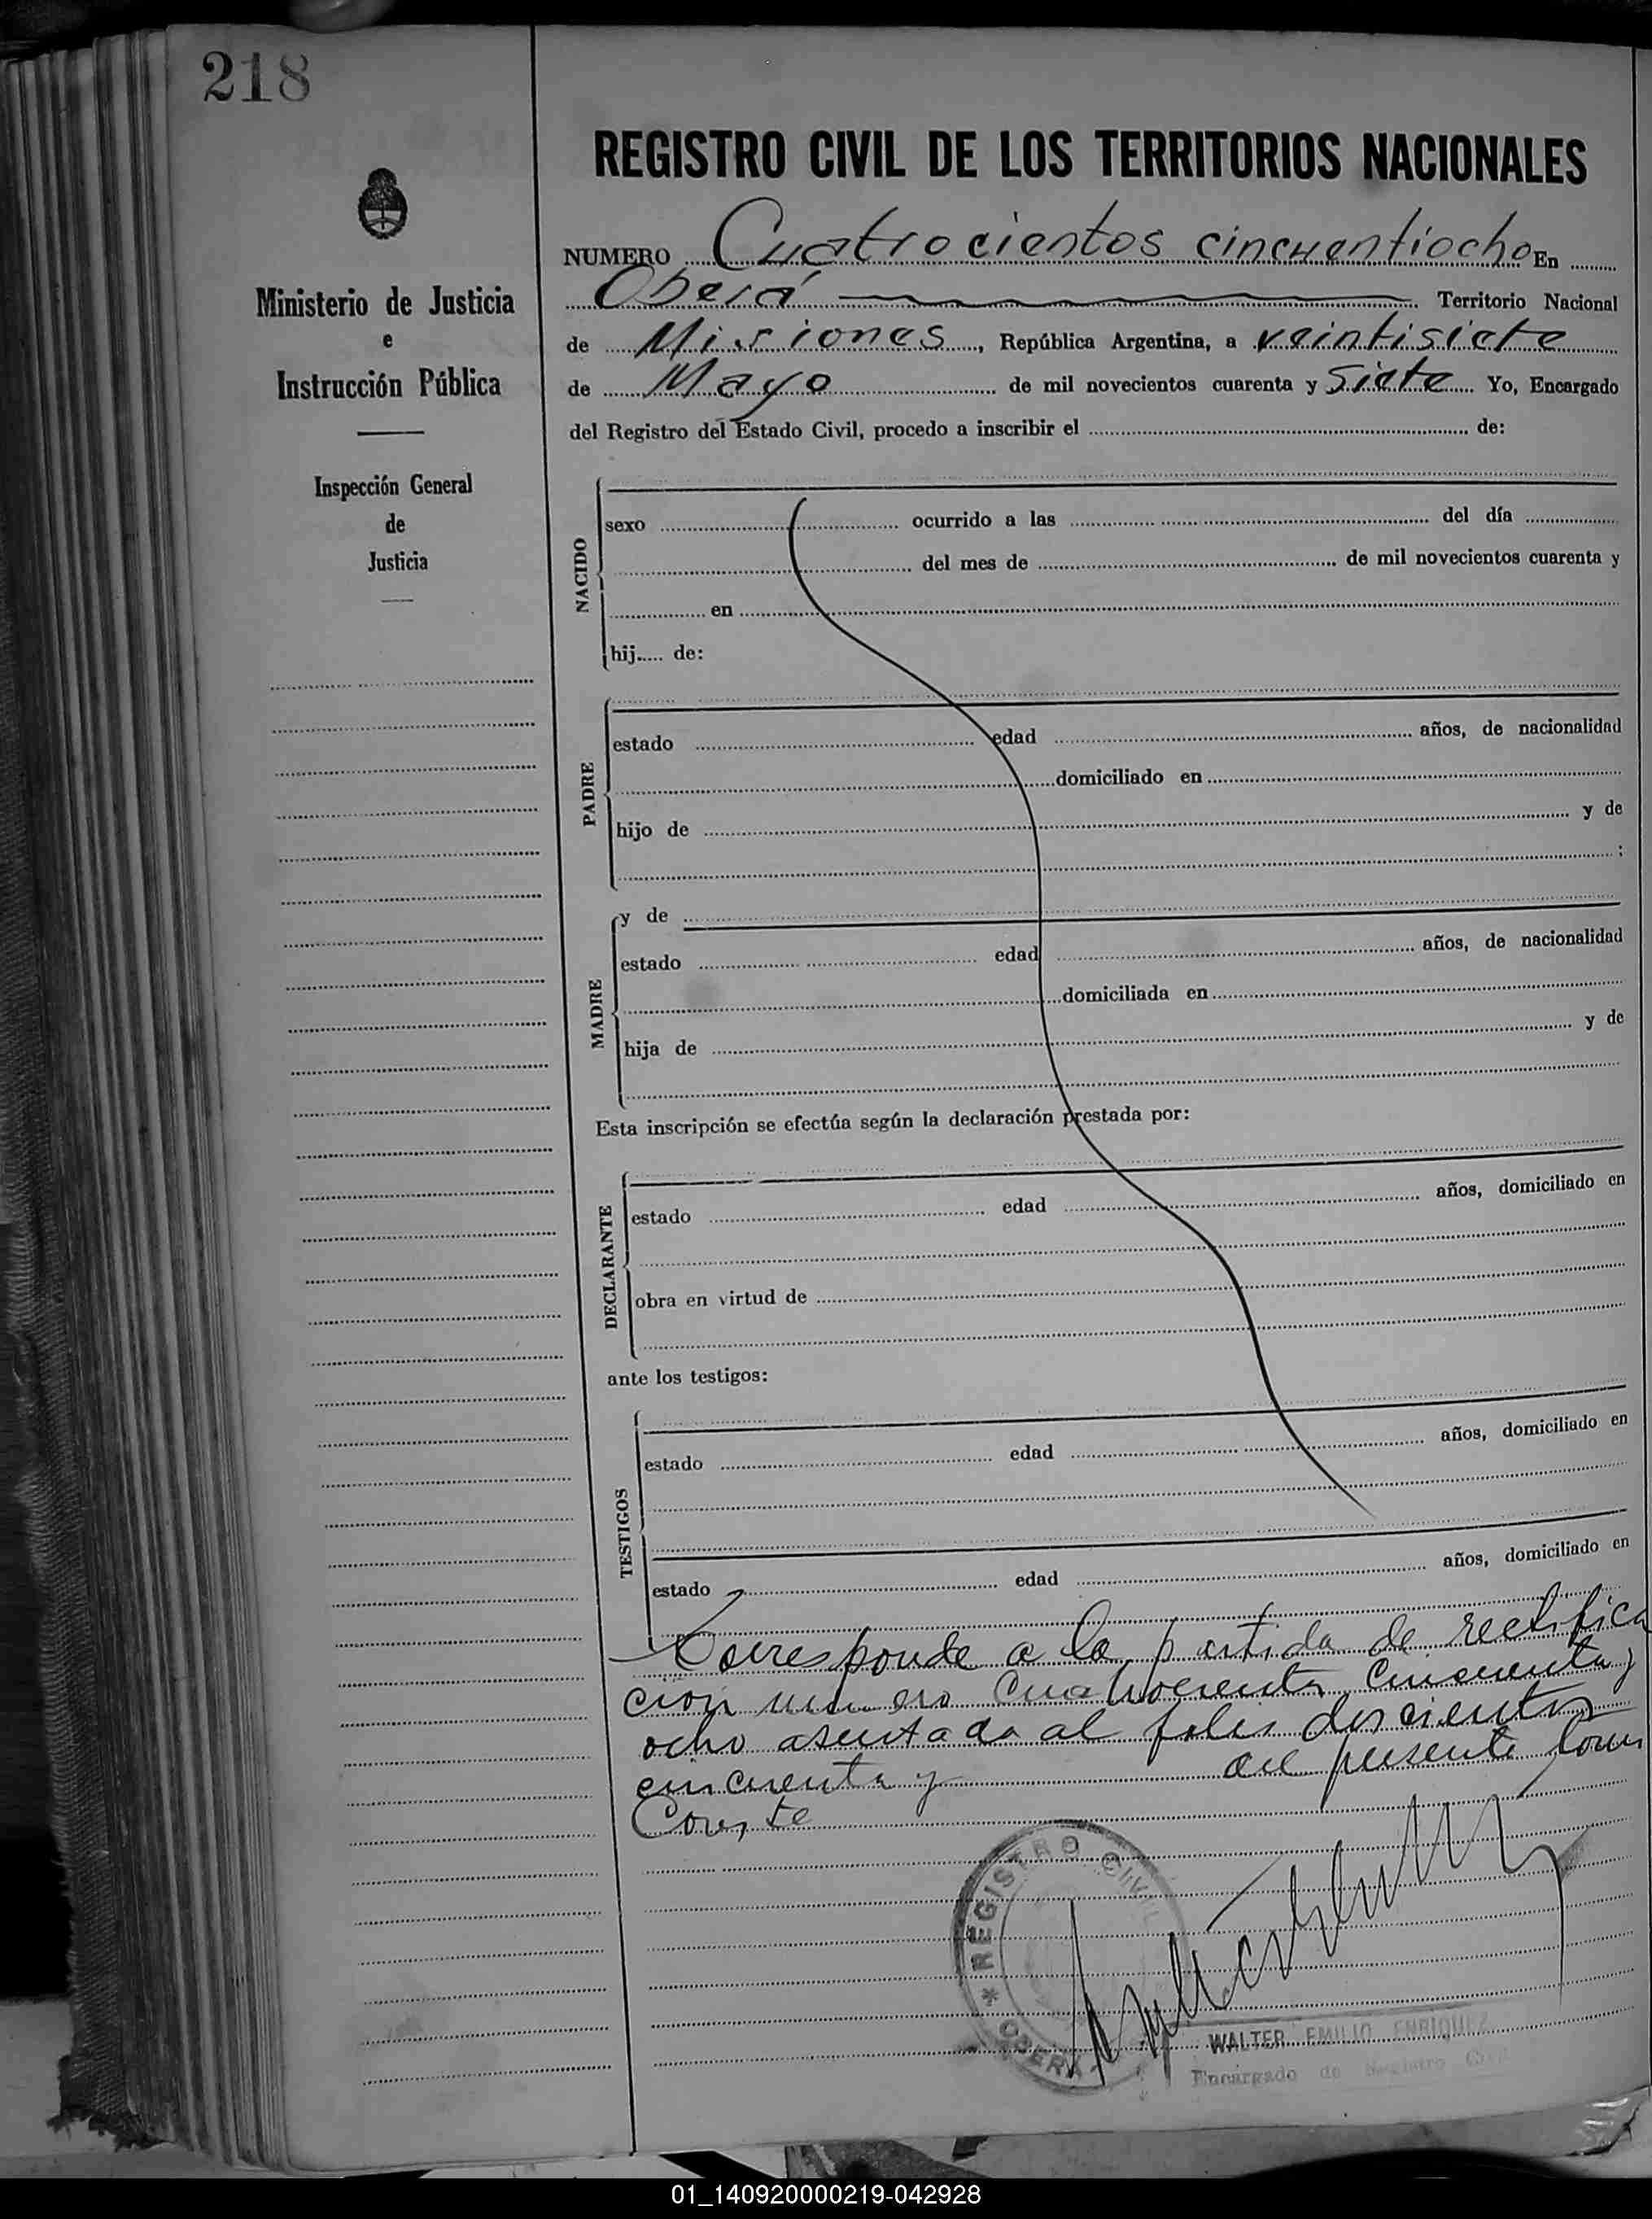 218
REGISTRO CIVIL DE LOS TERRITORIOS NACIONALES
NUMERO Cuatrocientos cincuentiocho En
Oberá Territorio Nacional
de Misiones, República Argentina, a veintisiete
de Mayo de mil novecientos cuarenta y Siete Yo, Encargado
del Registro del Estado Civil, procedo a inscribir el de:
Ministerio de Justicia
e
Instrucción Pública
Inspección General
de
Justicia
NACIDO
sexo ocurrido a las del día
del mes de de mil novecientos cuarenta y
en
hij..... de:
PADRE
estado edad años, de nacionalidad
domiciliado en
hijo de y de
;
MADRE
y de
estado edad años, de nacionalidad
domiciliada en
hija de y de
Esta inscripción se efectúa según la declaración prestada por:
DECLARANTE
estado edad años, domiciliado en
obra en virtud de
ante los testigos:
TESTIGOS
estado edad años, domiciliado en
estado edad años, domiciliado en
Corresponde a la partida de rectifica
ción número cuatrocienta cincuenta y
ocho asentada al folio doscientos
cincuenta y del presente tomo
Conste
* REGISTRO CIVIL
OBERA
WALTER EMILIO ENRIQUEZ
Encargado de Registro Civil
01_140920000219-042928